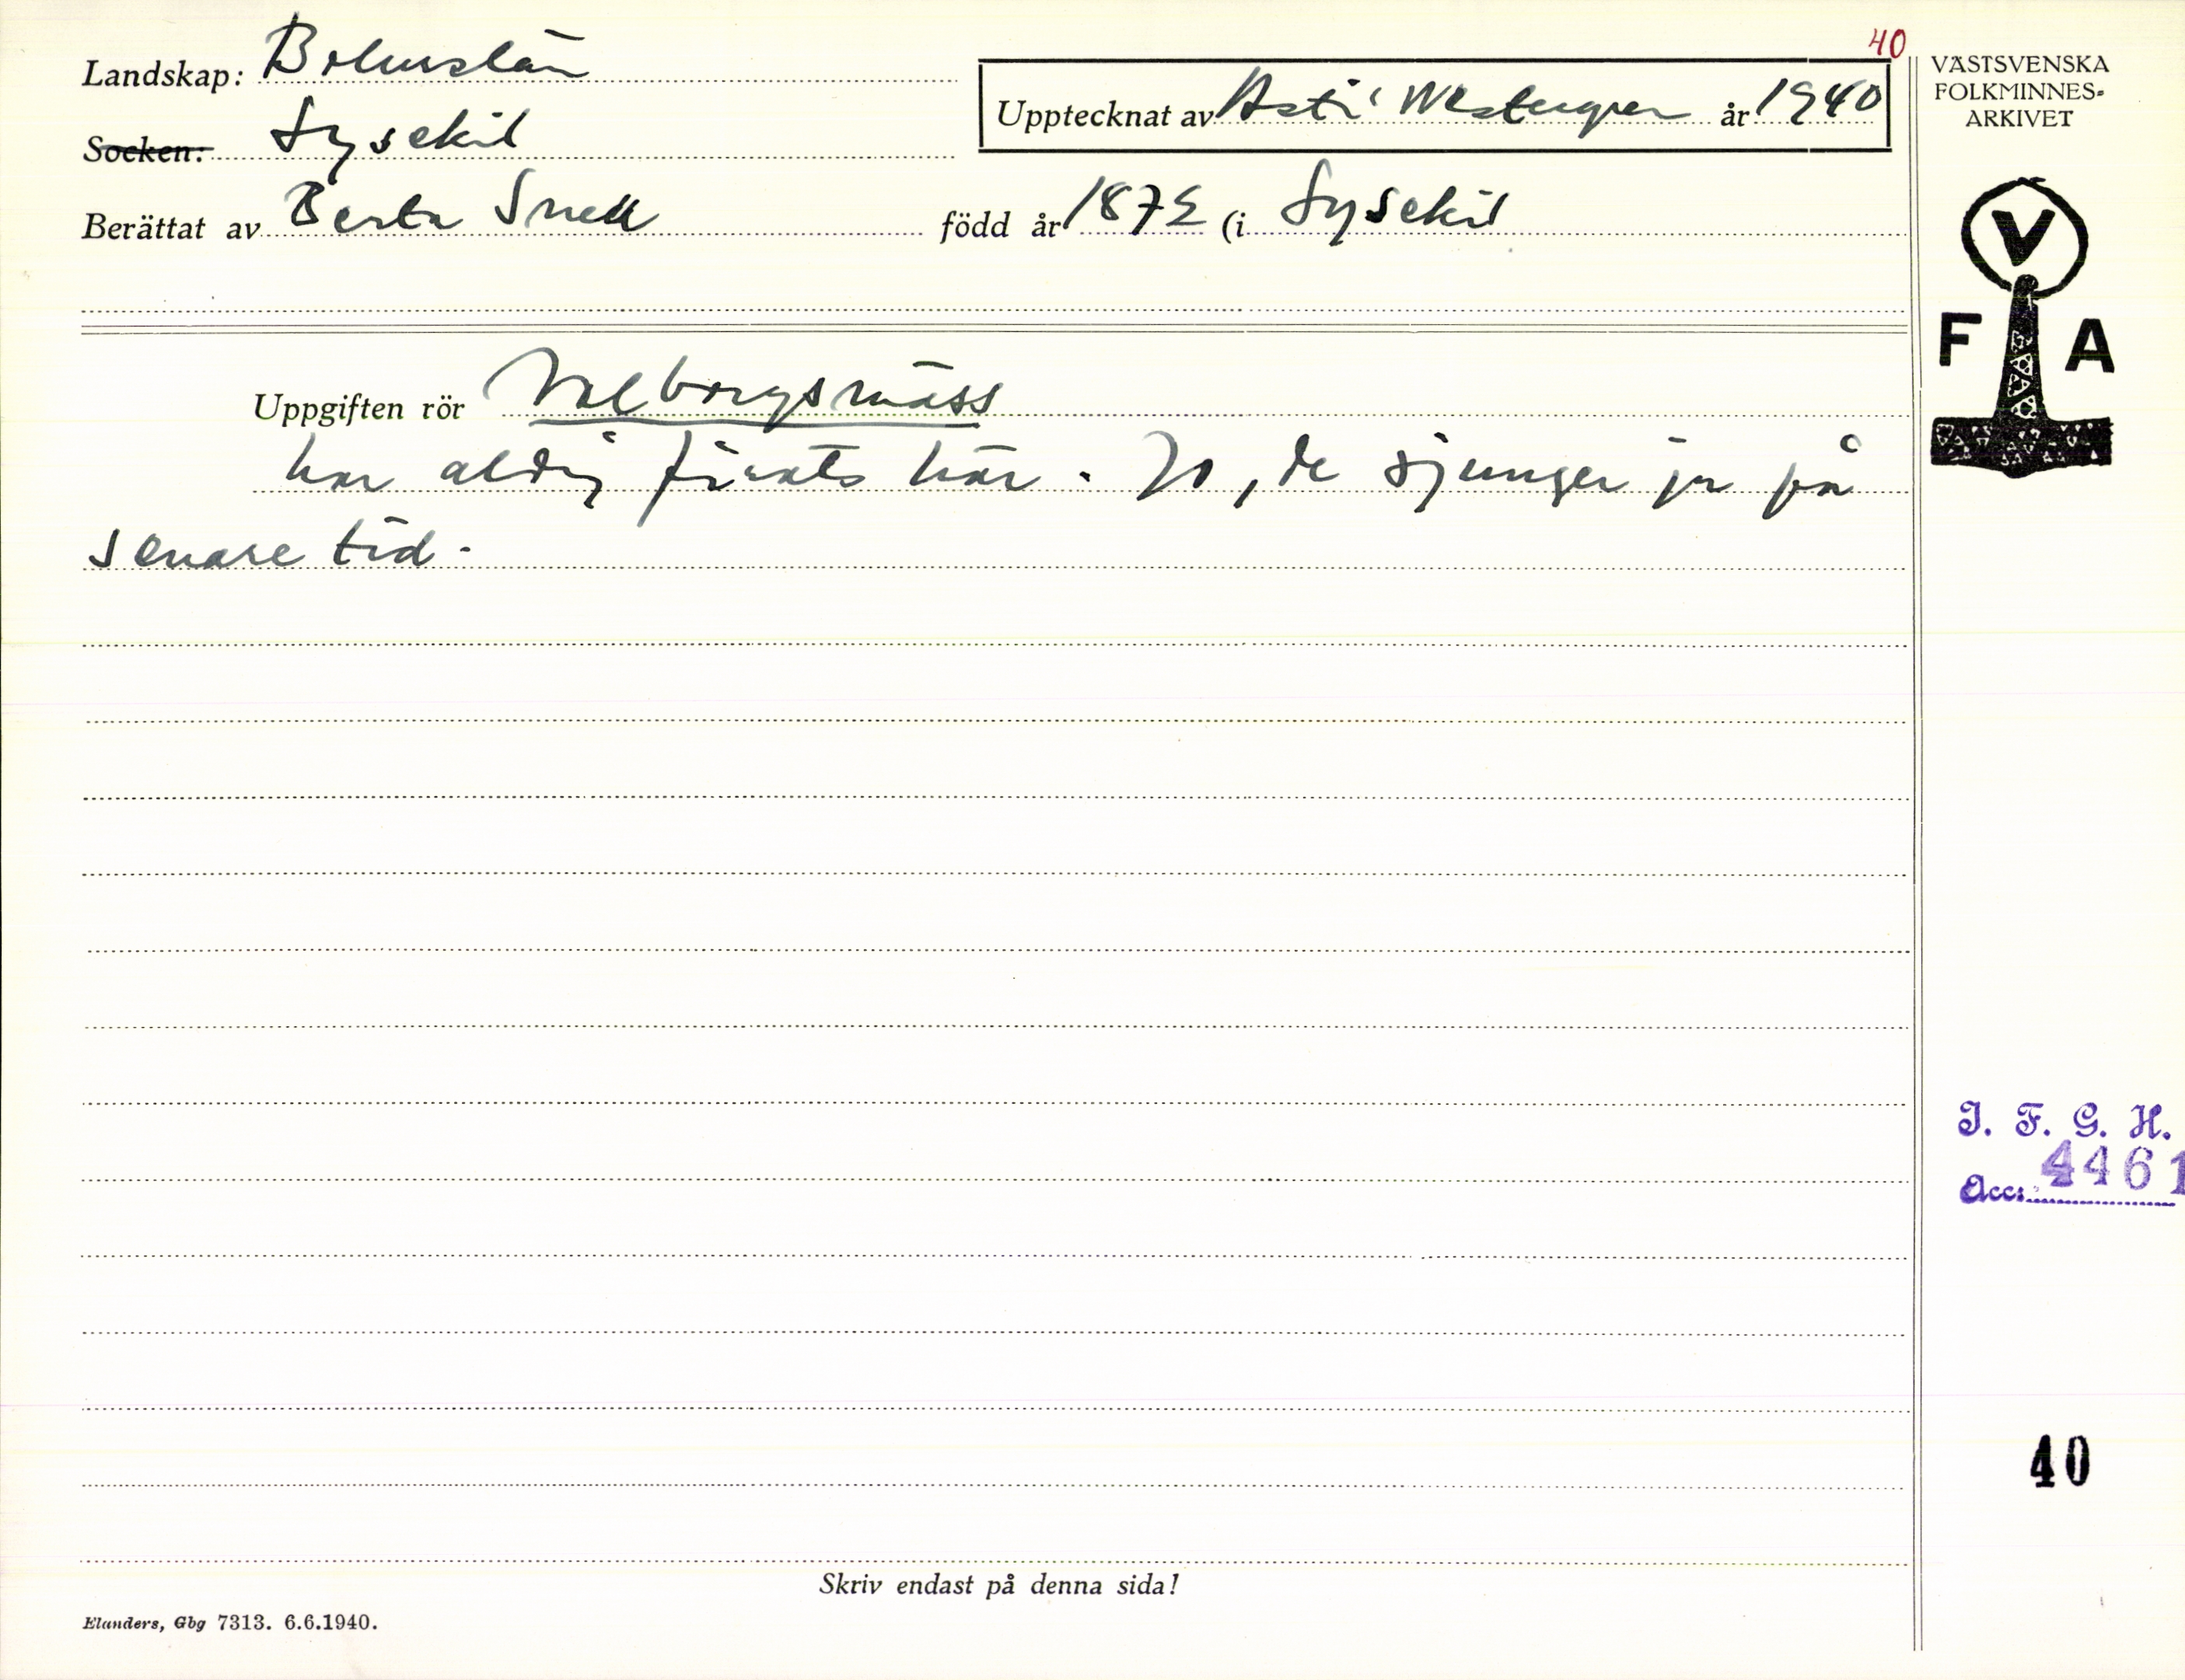 40
Landskap: Bohuslän
Upptecknat av Astri Westergren år 1940
Socken: Lysekil
Berättat av Berta Snell född år 1872 (i Lysekil
Uppgiften rör Valborgsmäss
har aldrig firats här. Jo, de sjunger ju på
senare tid.
Skriv endast på denna sida!
Elanders, Gbg 7313. 6.6.1940.
VÄSTSVENSKA
FOLKMINNES-
ARKIVET
V
F A
I. F. G. H.
Acc: 4461
40